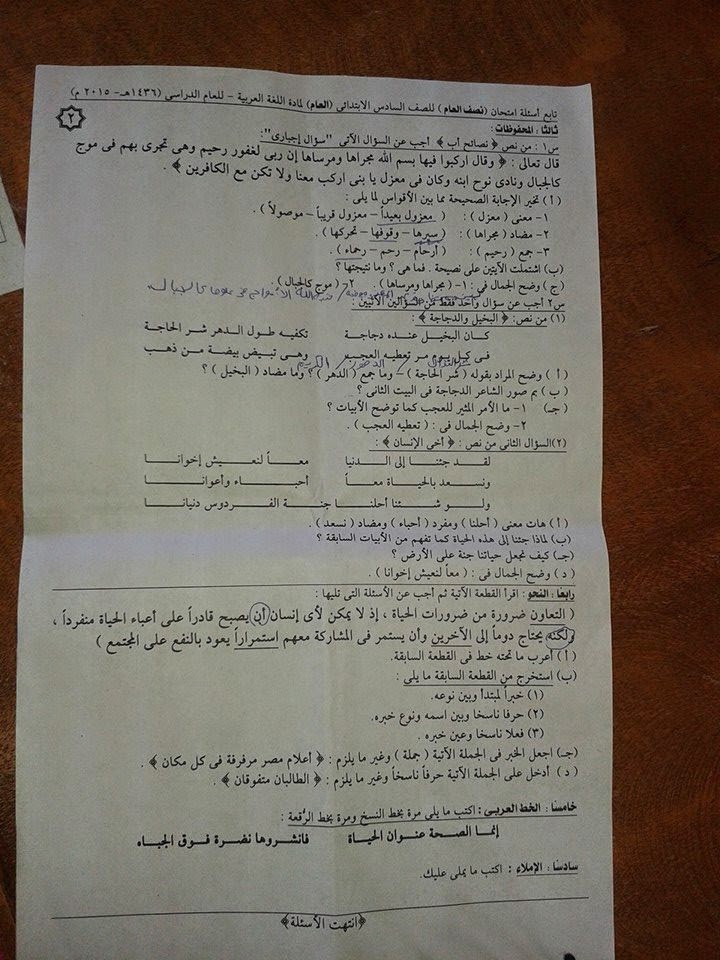 تابع أسئلة امتحان (نصف العام) للصف السادس الابتدائى (العام) لمادة اللغة العربية - للعام الدراسى (١٤٣٦هـ - ٢٠١٥ م)
٢
ثالثا : المحفوظات :
س١ : من نص ﴿ نصائح أب ﴾ أجب عن السؤال الآتى "سؤال إجبارى":
قال تعالى : ﴿ وقال اركبوا فيها بسم الله مجراها ومرساها إن ربى لغفور رحيم وهى تجرى بهم فى موج
كالجبال ونادى نوح ابنه وكان فى معزل يا بنى اركب معنا ولا تكن مع الكافرين ﴾ .
( أ ) تخير الإجابة الصحيحة مما بين الأقواس لما يلى :
١- معنى ( معزل ) : ( معزول بعيداً - معزول قريباً - موصولاً ) .
٢- مضاد ( مجراها ) : ( سيرها - وقوفها - تحركها ) .
٣- جمع ( رحيم ) : ( أرحام - رحم - رحماء ) .
(ب) اشتملت الآيتين على نصيحة . فما هى ؟ وما نتيجتها ؟
(ج) وضح الجمال فى : ١- ( مجراها ومرساها ) ٢- ( موج كالجبال )
س٢ أجب عن سؤال واحد فقط من السؤالين الآتيين :
(١) من نص: ﴿ البخيل والدجاجة ﴾ :
كـان البخيـل عنـده دجاجـة تكفيـه طول الدهر شر الحاجة
فى كـل يـوم مـر تعطيـه العجـب وهى تبيض بيضة مـن ذهـب
( أ ) وضح المراد بقوله ( شر الحاجة ) - وما جمع ( الدهر ) ؟ وما مضاد ( البخيل ) ؟
( ب ) بم صور الشاعر الدجاجة فى البيت الثانى ؟
( جـ ) ١- ما الأمر المثير للعجب كما توضح الأبيات ؟
٢- وضح الجمال فى : ( تعطيه العجب ) .
(٢) السؤال الثانى من نص : ﴿ أخى الإنسان ﴾ :
لقـد جئنـا إلى الـدنيا معـاً لنعيـش إخوانـا
ونسـعد بالحيـاة معـاً أحبـاء وأعوانـا
ولـو شـئنا أحلنـا جنـة الفـردوس دنيانـا
( أ ) هات معنى ( أحلنا ) ومفرد ( أحباء ) ومضاد ( نسعد ) .
(ب) لماذا جئنا إلى هذه الحياة كما تفهم من الأبيات السابقة ؟
(جـ) كيف نجعل حياتنا جنة على الأرض ؟
( د ) وضح الجمال فى : ( معاً لنعيش إخوانا ) .
رابعا : النحو : اقرأ القطعة الآتية ثم أجب عن الأسئلة التى تليها :
( التعاون ضرورة من ضرورات الحياة ، إذ لا يمكن لأى إنسان أن يصبح قادراً على أعباء الحياة منفرداً ،
ولكنه يحتاج دوماً إلى الآخرين وأن يستمر فى المشاركة معهم استمراراً يعود بالنفع على المجتمع )
( أ ) أعرب ما تحته خط فى القطعة السابقة.
(ب) استخرج من القطعة السابقة ما يلى :
(١) خبراً لمبتدأ وبين نوعه.
(٢) حرفا ناسخا وبين اسمه ونوع خبره.
(٣) فعلا ناسخا وعين خبره .
(جـ) اجعل الخبر فى الجملة الآتية ( جملة ) وغير ما يلزم : ﴿ أعلام مصر مرفرفة فى كل مكان ﴾ .
( د ) أدخل على الجملة الآتية حرفاً ناسخاً وغير ما يلزم : ﴿ الطالبان متفوقان ﴾ .
خامسا : الخط العربى : اكتب ما يلى مرة بخط النسخ ومرة بخط الرقعة :
إنما الصحة عنوان الحياة فانشروها نضرة فوق الجباه
سادسا : الإملاء : اكتب ما يملى عليك.
﴿انتهت الأسئلة﴾